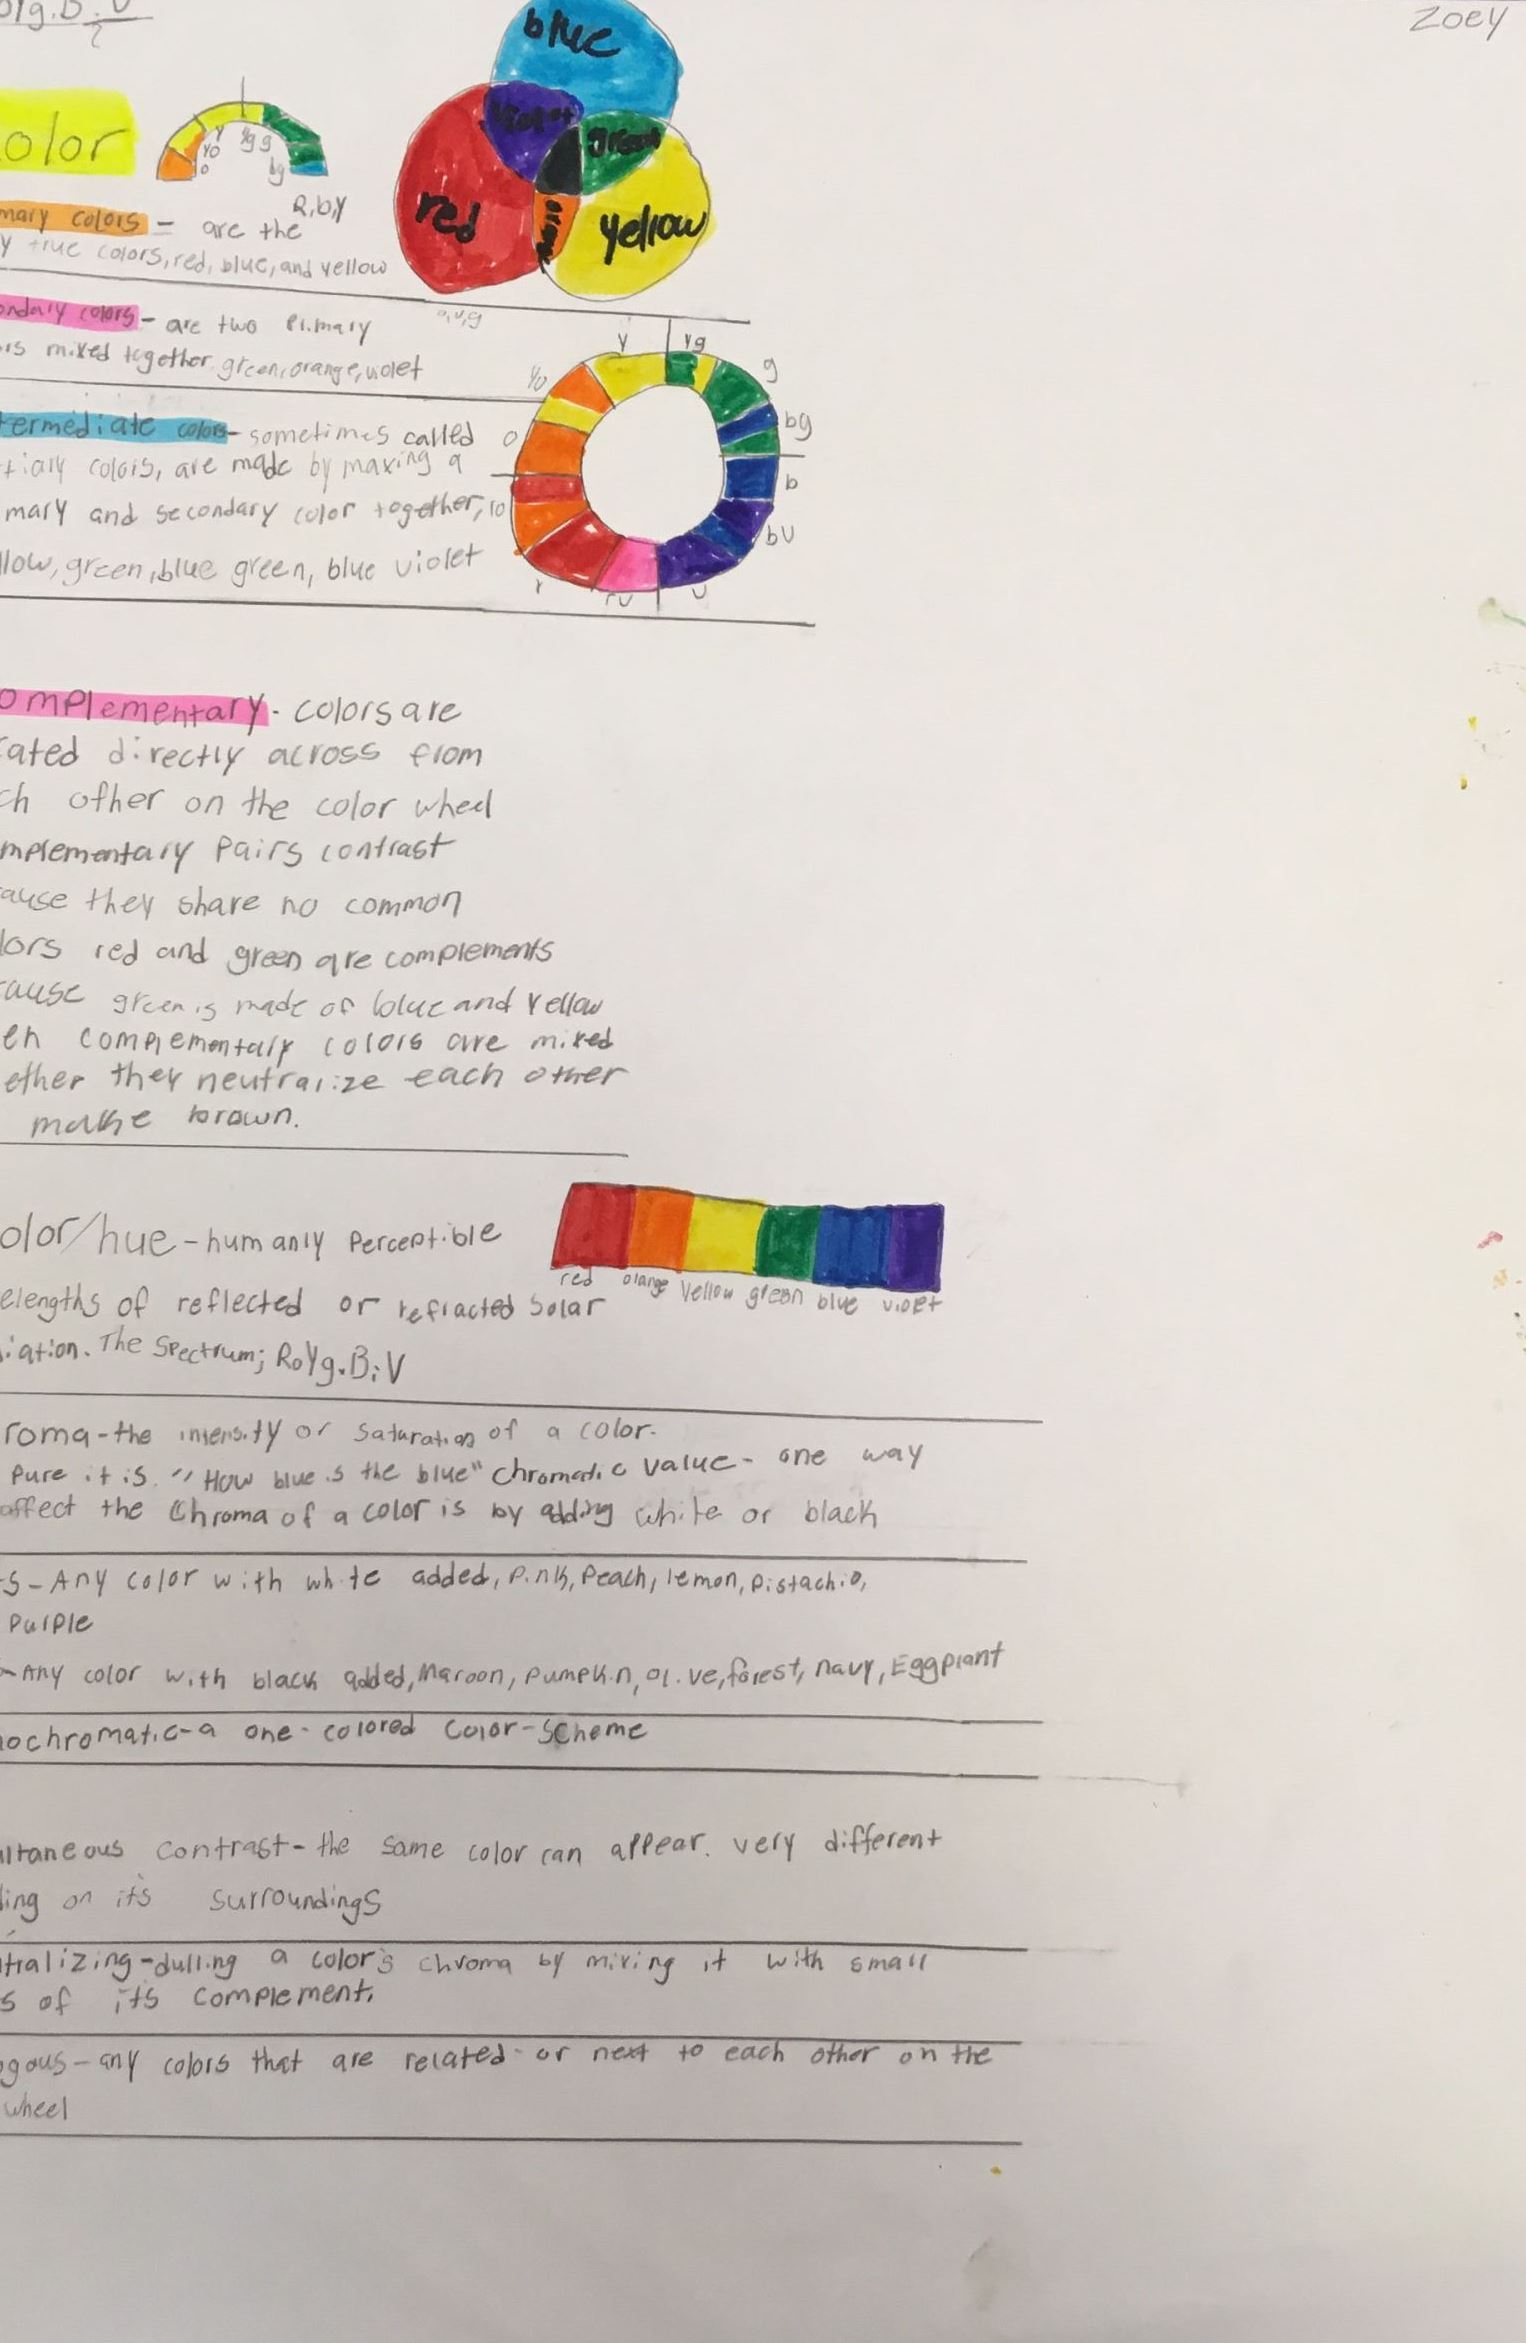 Zoey
blue
olor
violet
green
red
orange
yellow
o yo y yg g bg
R,b,y
mary colors = are the
y true colors, red, blue, and yellow
ondary colors - are two Primary
o,v,g
rs mixed together. green, orange, violet
termediate colors - sometimes called
tiary colors, are made by maxing a
mary and secondary color together, ro
llow, green, blue green, blue violet
y
yg
g
bg
b
bv
v
rv
r
o
yo
omplementary - colors are
cated directly across from
ch other on the color wheel
mplementary Pairs contrast
cause they share no common
lors red and green are complements
cause green is made of blue and Yellow
en complementary colors are mixed
ether they neutralize each other
make brown.
olor/hue - humanly Perceptible
elengths of reflected or refracted Solar
iation. The Spectrum; RoYg.B.V
red orange Yellow green blue violet
roma - the intensity or saturation of a color.
Pure it is. "How blue is the blue" chromatic value - one way
affect the Chroma of a color is by adding white or black
ts - Any color with white added, Pink, Peach, lemon, Pistachio,
Purple
- Any color with black added, Maroon, Pumpkin, olive, forest, navy, Eggplant
nochromatic - a one-colored color-scheme
ultaneous contrast - the same color can appear. very different
ding on it's surroundings
tralizing - dulling a color's chroma by mixing it with small
s of it's complement.
ogous - any colors that are related or next to each other on the
wheel